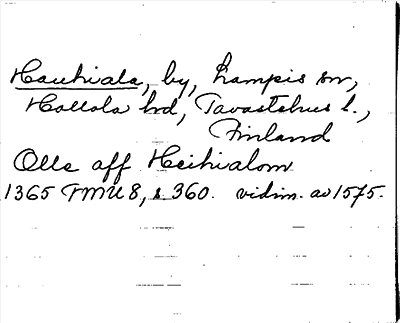 Hauhiala, by, Lampis sn,
Hollola hd, Tavastehus l.,
Finland
Olle aff Heihialom
1365 FMU 8, s. 360. vidim. av 1575.